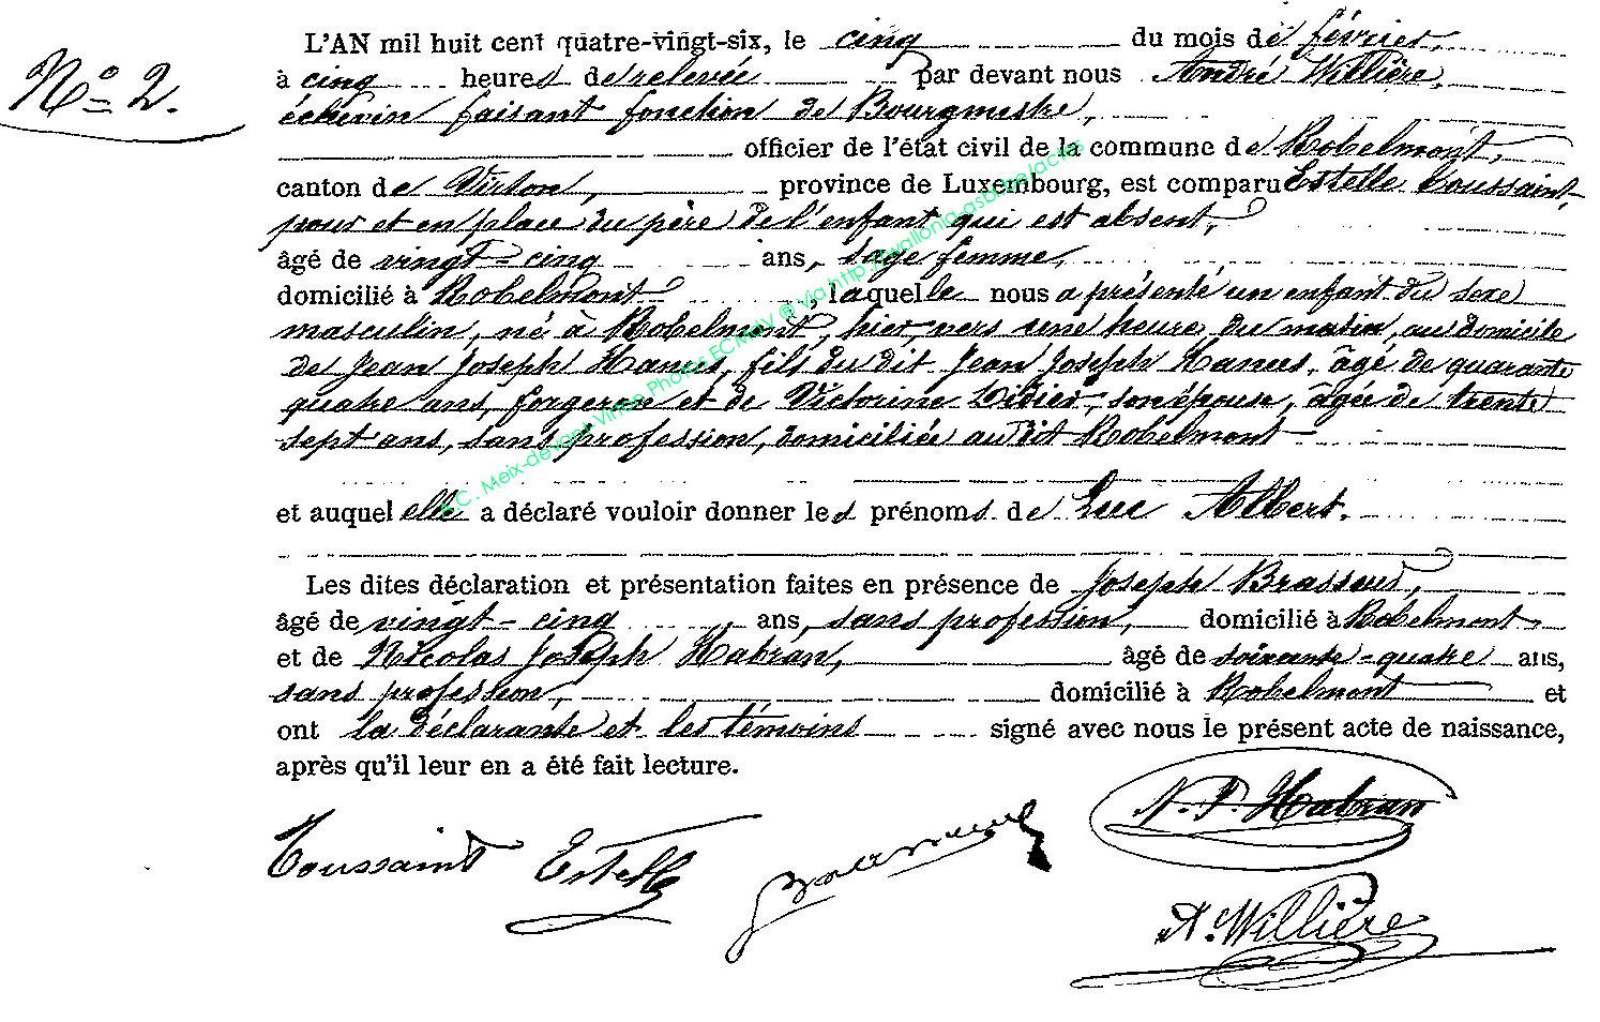 N° 2.
L'AN mil huit cent quatre-vingt-six, le cinq du mois de février,
à cinq heures de relevée par devant nous André Willière,
échevin faisant fonction de Bourgmestre,
officier de l'état civil de la commune de Robelmont,
canton de Virton, province de Luxembourg, est comparu Estelle Toussaint,
pour et en place du père de l'enfant qui est absent,
âgé de vingt-cinq ans, sage femme,
domicilié à Robelmont, laquelle nous a présenté un enfant du sexe
masculin, né à Robelmont, hier, vers une heure du matin, au domicile
de Jean Joseph Hanus, fils du dit Jean Joseph Hanus, âgé de quarante
quatre ans, forgeron et de Victorine Didier, son épouse, âgée de trente
sept ans, sans profession, domiciliée au dit Robelmont
et auquel elle a déclaré vouloir donner les prénoms de Luc Albert.
Les dites déclaration et présentation faites en présence de Joseph Brasseur,
âgé de vingt-cinq ans, sans profession, domicilié à Robelmont
et de Nicolas Joseph Habran, âgé de soixante-quatre ans,
sans profession, domicilié à Robelmont et
ont la déclarante et les témoins signé avec nous le présent acte de naissance,
après qu'il leur en a été fait lecture.
N. J. Habran
Toussaint Estelle
A. Willière